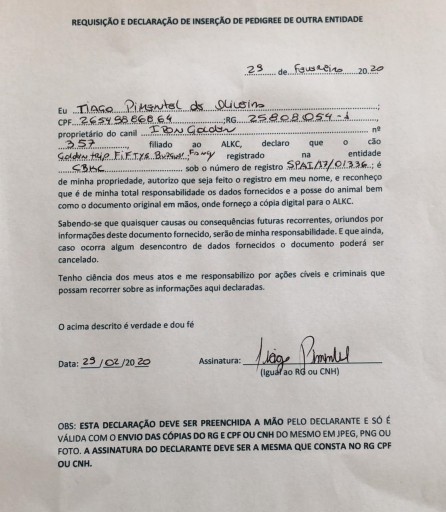 REQUISIÇÃO E DECLARAÇÃO DE INSERÇÃO DE PEDIGREE DE OUTRA ENTIDADE
29 de Fevereiro 2020
Eu TIAGO Pimentel de Oliveira;
CPF 26549886864;RG 25808054-1,
proprietário do canil IRON Golden nº
357, filiado ao ALKC, declaro que o cão
Golden FIFTYS registrado na entidade
CBKC sob o número de registro SPAI/17/01336; é
de minha propriedade, autorizo que seja feito o registro em meu nome, e reconheço
que é de minha total responsabilidade os dados fornecidos e a posse do animal bem
como o documento original em mãos, onde forneço a cópia digital para o ALKC.
Sabendo-se que quaisquer causas ou consequências futuras recorrentes, oriundos por
informações deste documento fornecido, serão de minha responsabilidade. E que ainda,
caso ocorra algum desencontro de dados fornecidos o documento poderá ser
cancelado.
Tenho ciência dos meus atos e me responsabilizo por ações cíveis e criminais que
possam recorrer sobre as informações aqui declaradas.
O acima descrito é verdade e dou fé
Data: 29/02/2020 Assinatura: Tiago Pimentel
(Igual ao RG ou CNH)
OBS: ESTA DECLARAÇÃO DEVE SER PREENCHIDA A MÃO PELO DECLARANTE E SÓ É
VÁLIDA COM O ENVIO DAS CÓPIAS DO RG E CPF OU CNH DO MESMO EM JPEG, PNG OU
FOTO. A ASSINATURA DO DECLARANTE DEVE SER A MESMA QUE CONSTA NO RG CPF
OU CNH.